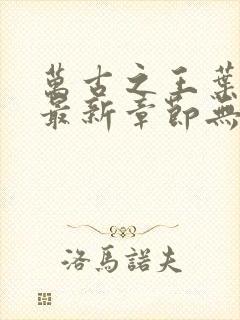 萬古之王葉
最新章節無
洛馬諾夫